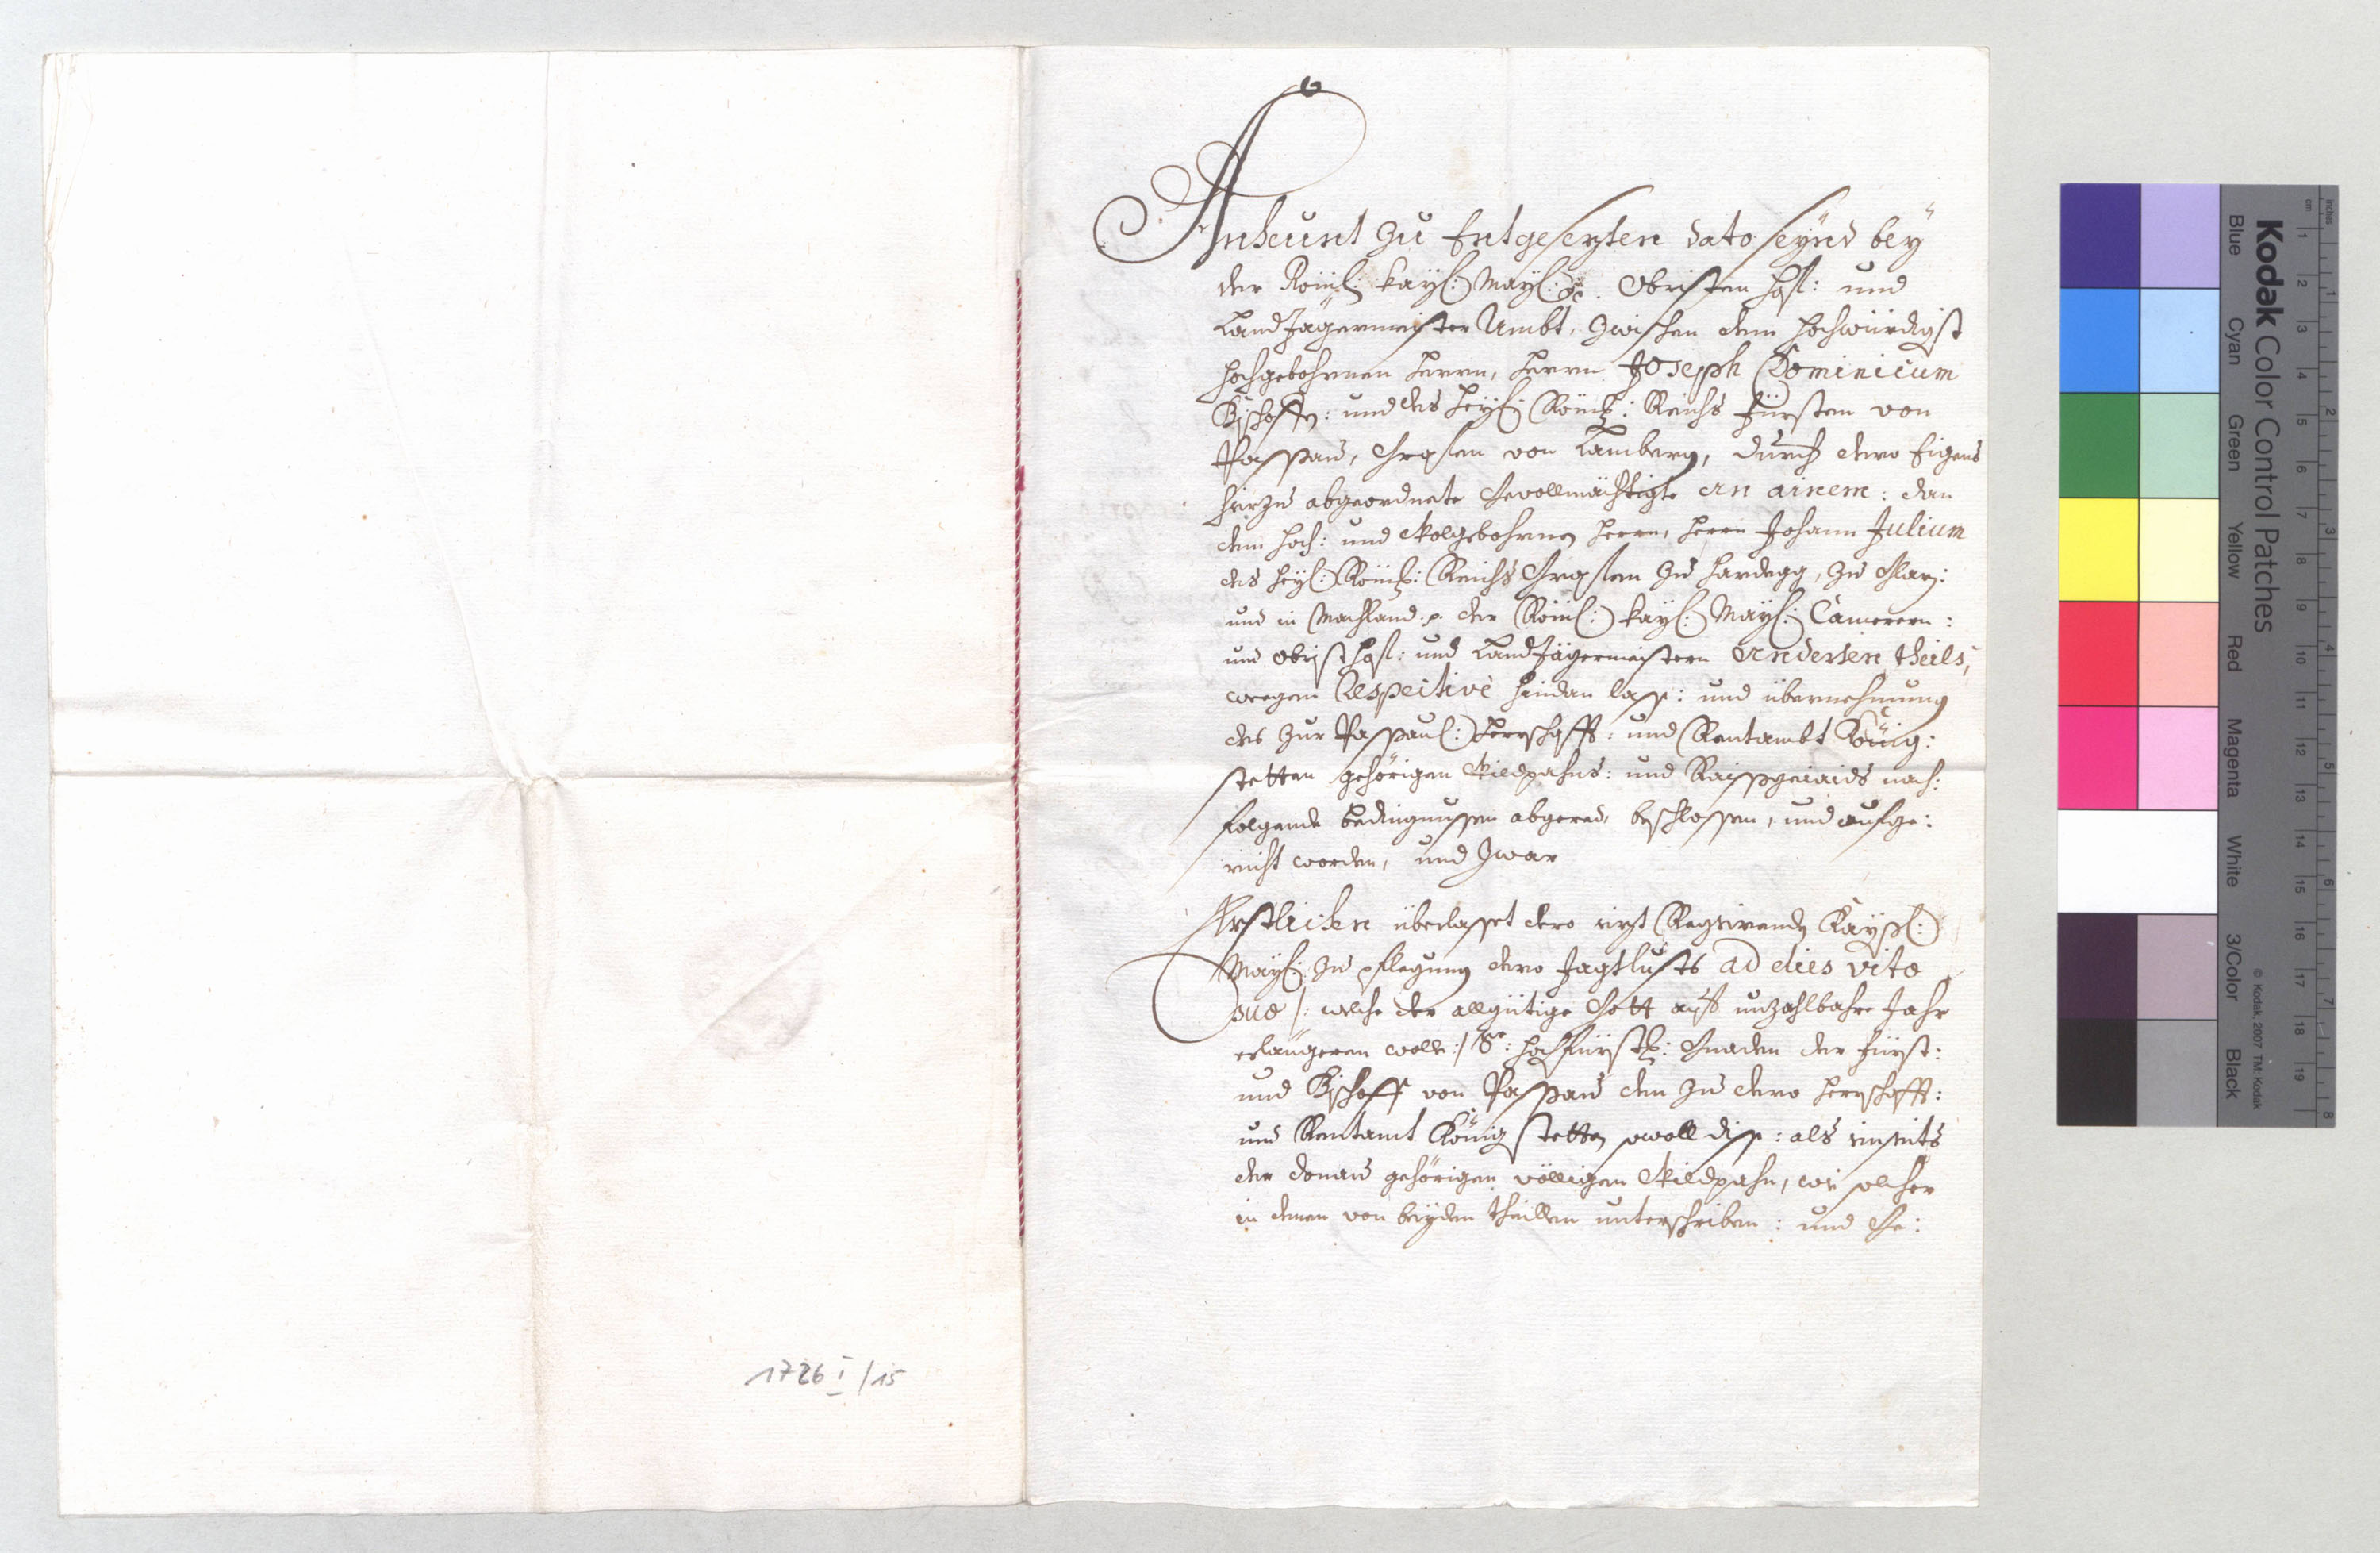 1726 I/15
Anheunt zu Entgeseczten dato seynd beÿ
der Röm: kaÿ: Maÿ: Obristen Hof: und
Land Jägermeister Ambt, zwischen dem hochwürdigist
hochgebohrnen Herrn, Herrn Joseph Dominicum
Bischoffen: und des Heÿl: Röm: Reichs Fürsten von
Passau, Grafen von Lamberg, durch dero Eigens
hierzu abgeordnete Gevollmächtigte an ainem: dan
dem Hoch: und Wolgebohrnen Herrn, Herrn Johann Julium
des Heÿl: Röm: Reichs Grafen zu Hardegg, zu Glaz:
und in Machland p. der Röm: kaÿ: Maÿ: Camerern:
und Obrist Hof: und Land Jägermeistern andersten theils,
wegen Respective hindan lass: und übernehmung
des zur Passau: Herrschafft: und Rentambt König:
stetten gehörigen Wildpahns: und Raissgeiaids nach:
folgende bedingnussen abgered, beschlossen, und aufge:
richt worden, und zwar
Erstlichen überlasset dero iezt Regierende Kaÿs:
Maÿ: zu pflegung dero Jagtlusts ad dies vitæ
suæ /: welche der allgütige Gott auf unzahlbahre Jahr
erlängeren wolle :/ Se: Hochfürstl: Gnaden der Fürst:
und Bischoff von Passau den zu dero Herrschafft:
und Rentamt Königstetten sowoll diss: als ienseits
der Donau gehörigen völligen Wildpahn, wie solcher
in denen von beÿden theillen unterschriben: und Ge:
Kodak Color Control Patches
Blue Cyan Green Yellow Red Magenta White 3/Color Black
© Kodak, 2007 TM: Kodak
inches 1 2 3 4 5 6 7 8
cm 1 2 3 4 5 6 7 8 9 10 11 12 13 14 15 16 17 18 19